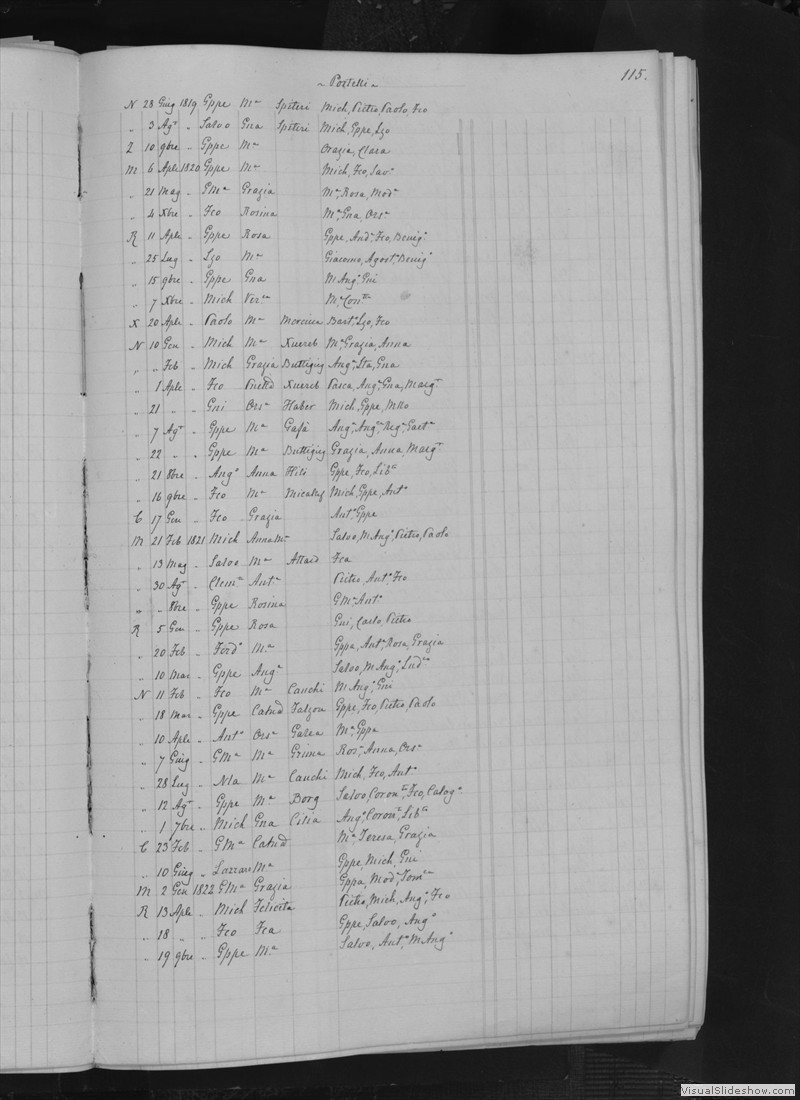 115.
~ Portelli ~
N 28 Giug 1819 Gppe Mª Spiteri Mich, Pietro, Paolo, Fco
" 3 Agᵗ " Salvo Gna Spiteri Mich, Gppe, Lzo
Z 10 9bre " Gppe Mª Orazia, Clara
M 6 Aple 1820 Gppe Mª Mich, Fco, Savº
" 21 Mag " GMª Grazia Mª, Rosa, Modª
" 4 Xbre " Fco Rosina Mª, Gna, Orsª
R 11 Aple " Gppe Rosa Gppe, Andª, Fco, Benigº
" 25 Lug " Lzo Mª Giacomo, Agostº, Benigº
" 15 9bre " Gppe Gna M Angº, Gni
" 7 Xbre " Mich Verᶜª Mª, Conᵗᵃ
X 20 Aple " Paolo Mª Mercieca Bartº, Lzo, Fco
N 10 Gen " Mich Mª Xuereb Mª, Grazia, Anna
" " Feb " Mich Grazia Buttigieg Angº, Sta, Gna
" 1 Aple " Fco Xuereb Pasca, Angª, Gna, Margᵗ
" 21 " " Gni Orsª Haber Mich, Gppe,
" 7 Agᵗ " Gppe Mª Gafà Angº, Angª,
" 22 " " Gppe Mª Buttigieg Grazia, Anna Margᵗ
" 21 8bre " Angº Anna Hili Gppe, Fco, Libᵗª
" 16 9bre " Fco Mª Micallef Mich, Gppe, Antº
C 17 Gen " Fco Grazia Antº, Gppe
M 21 Feb 1821 Mich Anna Mª Salvo, M Angº, Pietro, Paolo
" 13 Mag " Salvo Mª Attard Fca
" 30 Agᵗ " Clemᵗᵉ Antª Pietro, Antº, Fco
" " 8bre " Gppe Rosina GMª, Antº
R 5 Gen " Gppe Rosa Gni, Carlo, Pietro
" 20 Feb " Ferdº Mª Gppa, Antª, Rosa, Grazia
" 10 Mar " Gppe Angª Salvo, M Angº, Ludᶜº
N 11 Feb " Fco Mª Cauchi M Angº, Gni
" 18 Mar " Gppe Catnd Falzon Gppe, Fco, Pietro, Paolo
" 10 Aple " Antº Orsª Galea Mª, Gppa
" 7 Giug " GMª Mª Grima Rosª, Anna, Orsª
" 28 Lug " Nla Mª Cauchi Mich, Fco, Antº
" 12 Agᵗ " Gppe Mª Borg Salvo, Coronᵗº, Fco, Calogº
" 1 7bre " Mich Gna Cilia Angº, Coronᵗ, Libᵗª
C 23 Feb " GMª Catnd Mª, Teresa, Grazia
" 10 Giug " Lazzaro Mª Gppe, Mich, Gni
M 2 Gen 1822 GMª Grazia Gppa, Modª, Domᶜª
R 13 Aple " Mich Felicita Pietro, Mich, Angº, Fco
" 18 " " Fco Fca Gppe, Salvo, Angº
" 19 9bre " Gppe Mª Salvo, Antº, M Angº
VisualSlideshow.com